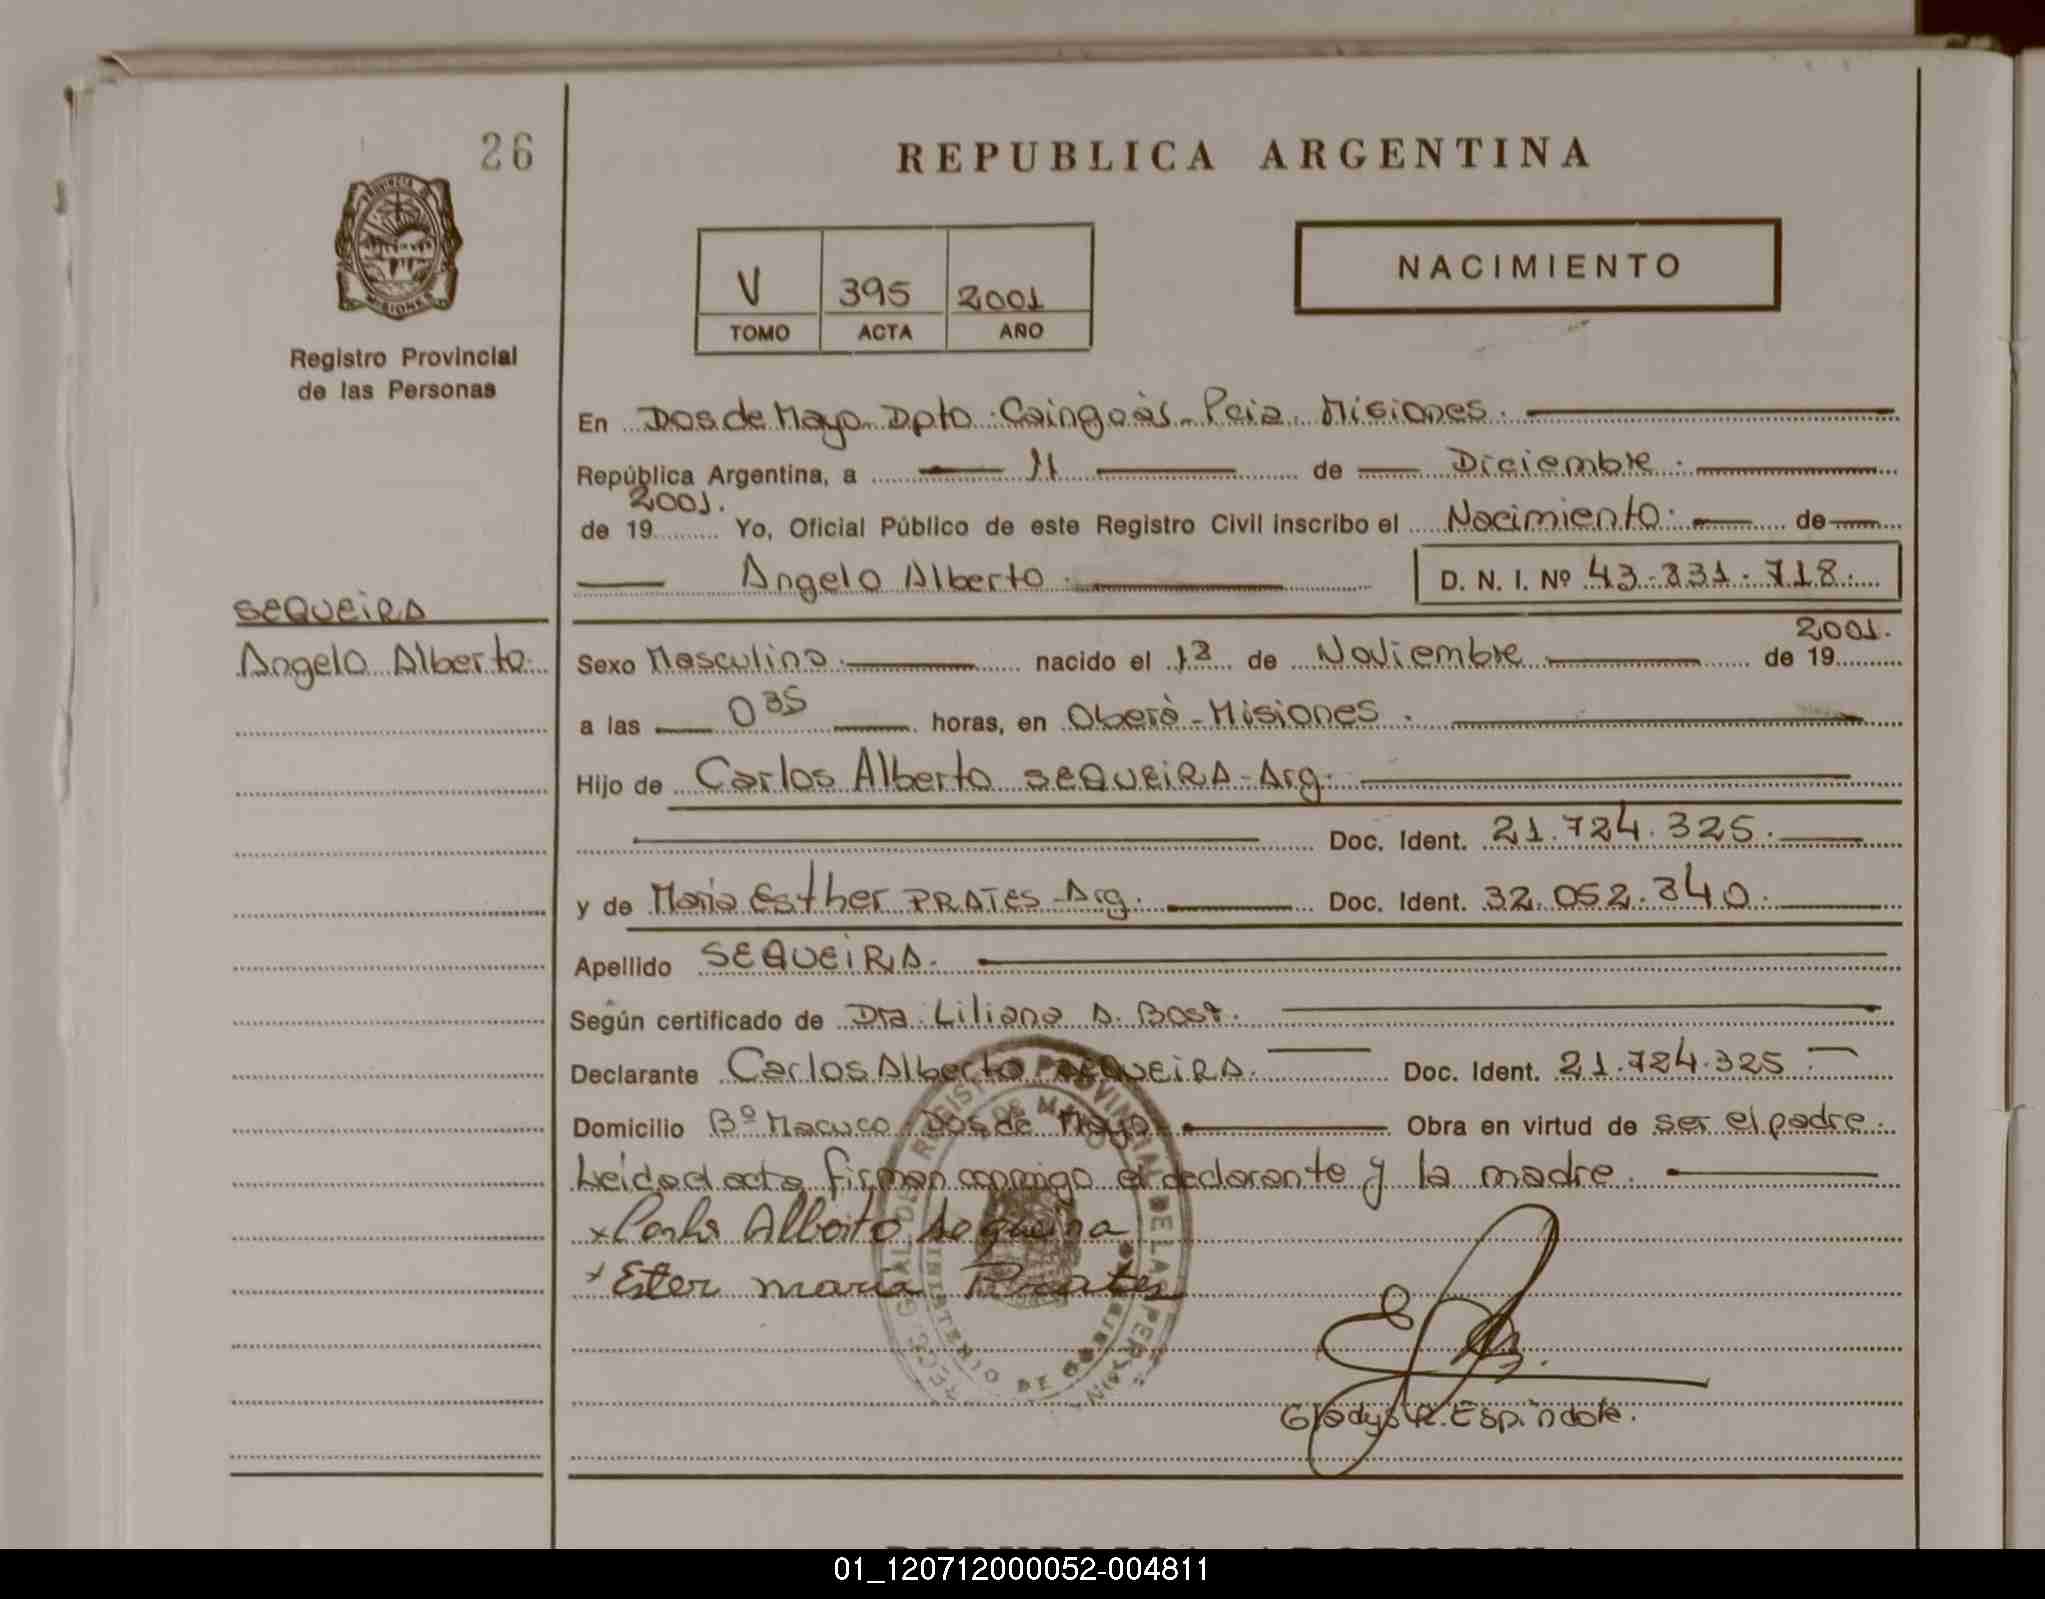 26
REPUBLICA ARGENTINA
PROVINCIA DE
MISIONES
Registro Provincial
de las Personas
V 395 2001
TOMO ACTA AÑO
NACIMIENTO
En Dos de Mayo Dpto. Caingoàs - Pcia. Misiones.
República Argentina, a 11 de Diciembre.
2001.
de 19 Yo, Oficial Público de este Registro Civil inscribo el Nacimiento. de
Angelo Alberto. D. N. I. Nº 43.831.718.
SEQUEIRA
Angelo Alberto.
2001.
Sexo Masculino. nacido el 12 de Noviembre de 19
a las 0 35 horas, en Oberà - Misiones.
Hijo de Carlos Alberto SEQUEIRA - Arg.
Doc. Ident. 21.724.325.
y de Maria Esther PRATES - Arg. Doc. Ident. 32.052.340.
Apellido SEQUEIRA.
Según certificado de Dra. Liliana A.
Declarante Carlos Alberto SEQUEIRA. Doc. Ident. 21.724.325
Domicilio Bº Macuco Dos de Mayo. Obra en virtud de ser el padre.
Leida el acta firman conmigo el declarante y la madre.
x Carlos Alberto Sequeira
x Ester maria Prates
REGISTRO PROVINCIAL DE LAS PERSONAS
DOS DE MAYO
MINISTERIO DE GOBIERNO
Gladys R. Espindola.
01_120712000052-004811